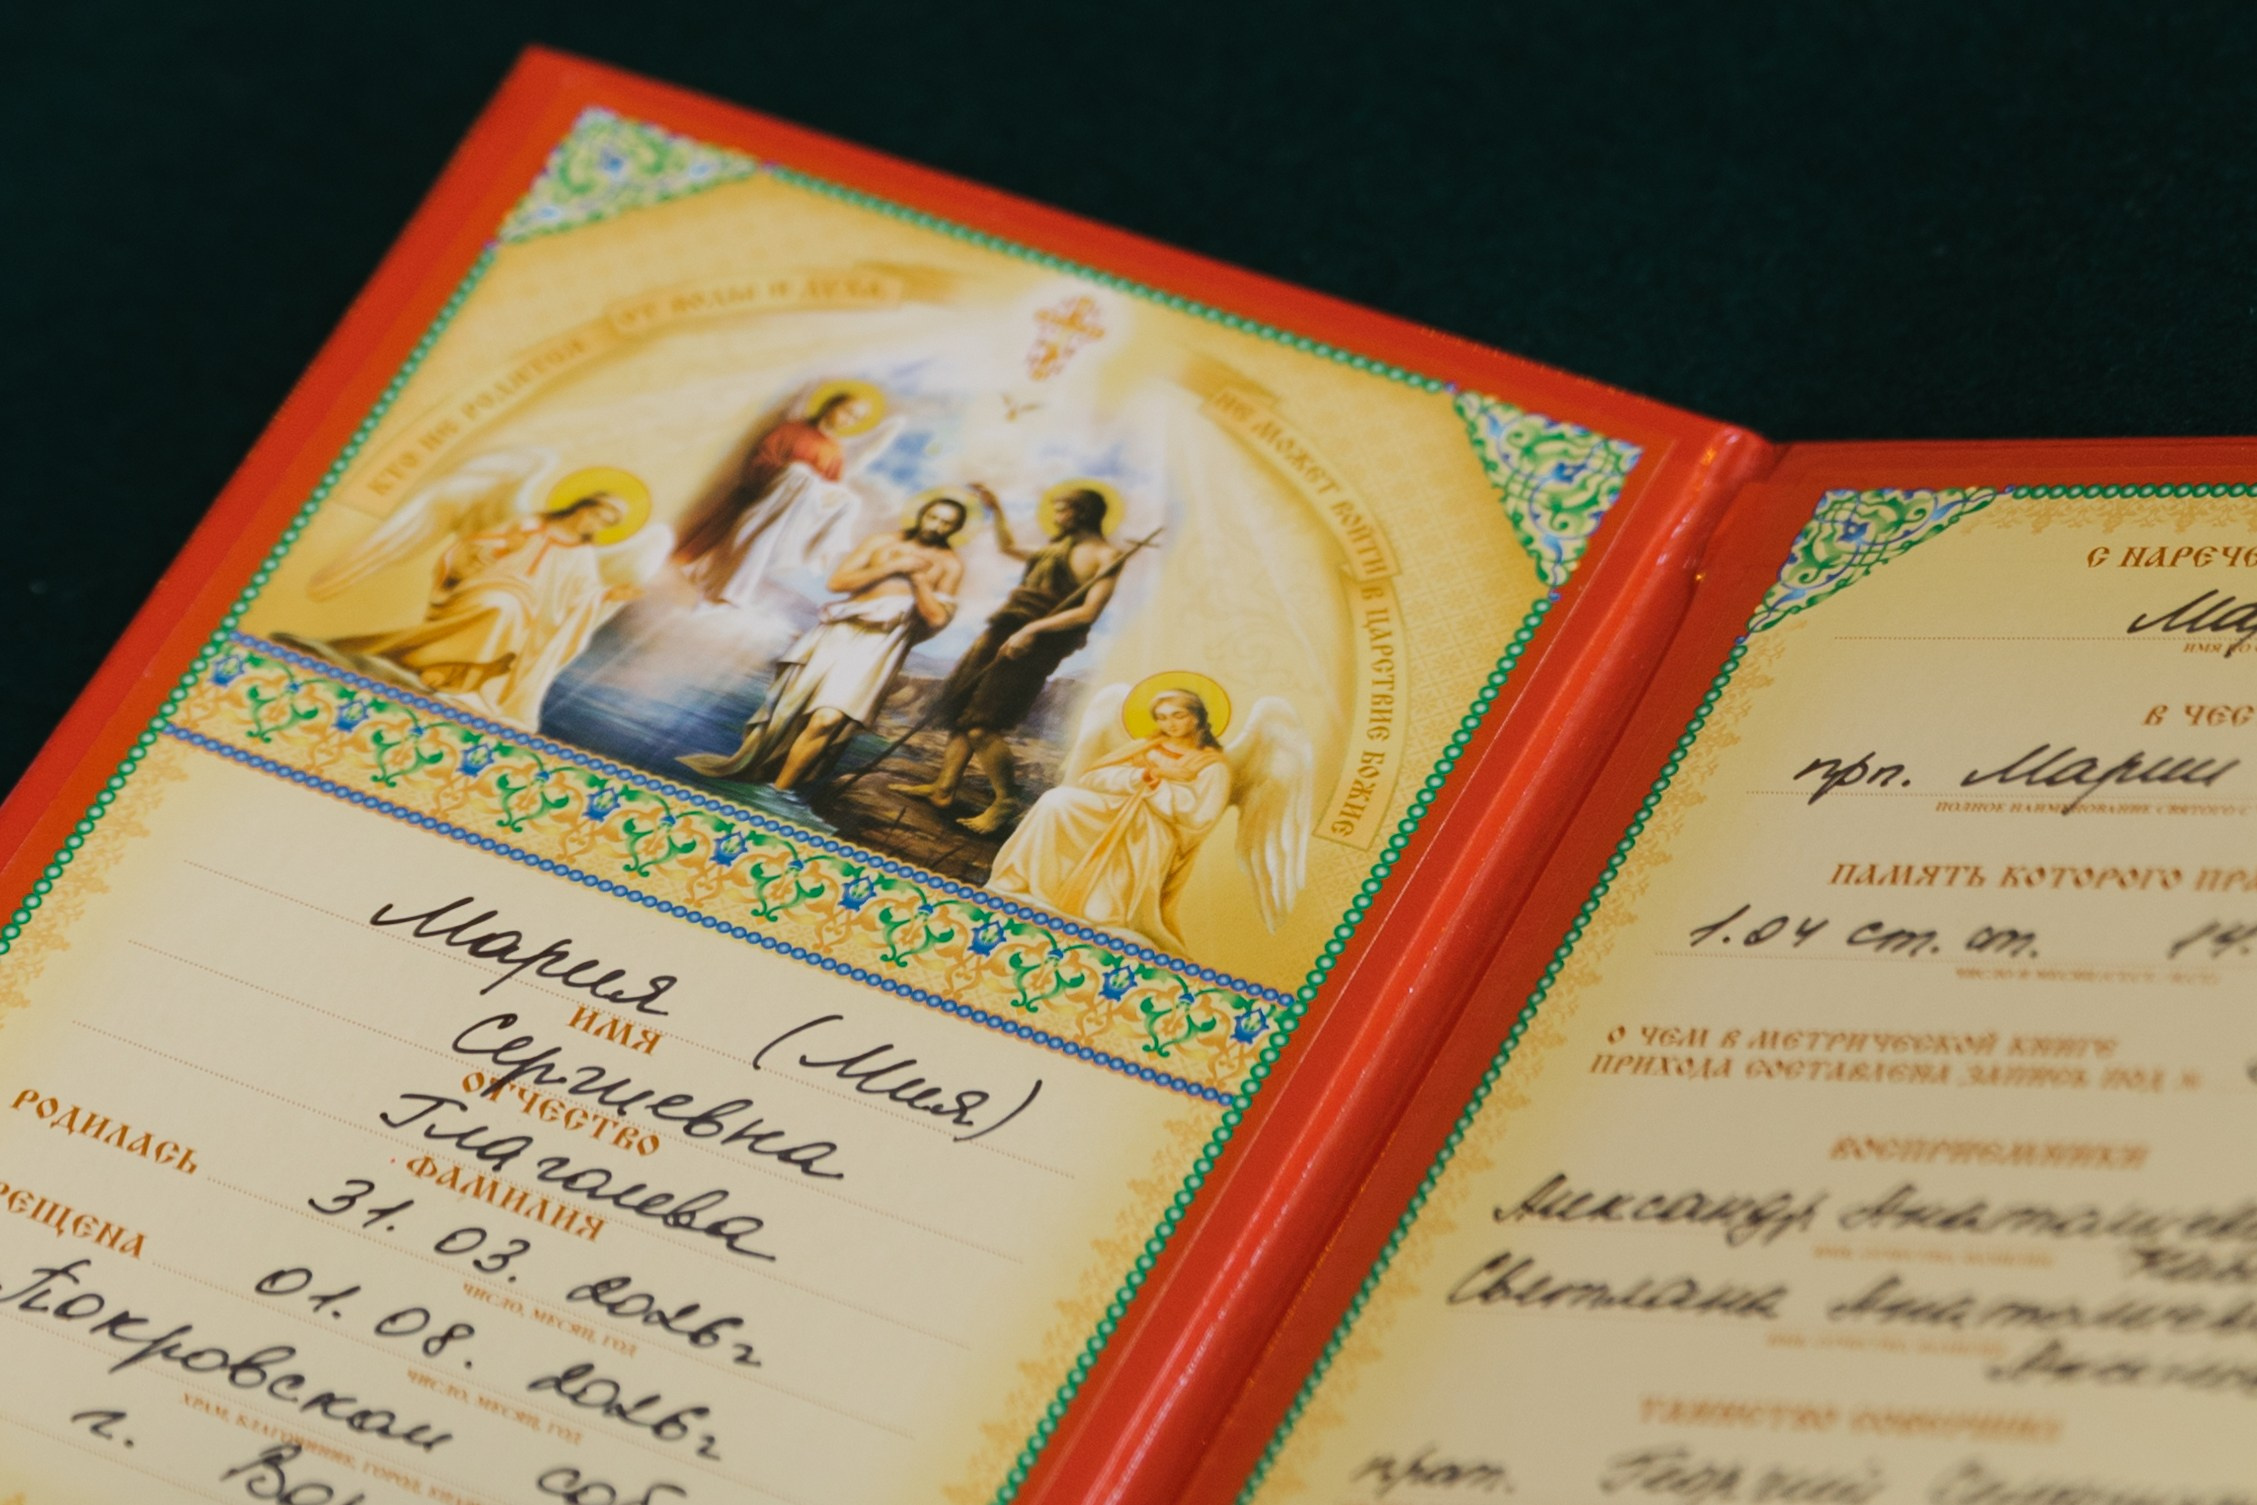 КТО НЕ РОДИТСЯ ОТ ВОДЫ И ДУХА
НЕ МОЖЕТ ВОЙТИ В ЦАРСТВИЕ БОЖИЕ
Мария (Мия)
ИМЯ
Сергиевна
ОТЧЕСТВО
Глаголева
ФАМИЛИЯ
РОДИЛАСЬ 31. 03. 2026г
ЧИСЛО, МЕСЯЦ, ГОД
РЕЩЕНА 01. 08. 2026г
ЧИСЛО, МЕСЯЦ, ГОД
Покровском соб
ХРАМ, ГОРОД
г. Вор
С НАРЕЧЕ
Ма
ИМЯ
В ЧЕС
прп. Марии
ПОЛНОЕ НАИМЕНОВАНИЕ СВЯТОГО С
ПАМЯТЬ КОТОРОГО ПРА
1.04 ст. ст. 14.
О ЧЕМ В МЕТРИЧЕСКОЙ КНИГЕ
ПРИХОДА СОСТАВЛЕНА ЗАПИСЬ ПОД №
ВОСПРИЕМНИКИ
Александр Анатольев
Светлана Анатольев
ТАИНСТВО СОВЕРШИЛ
прот. Георгий